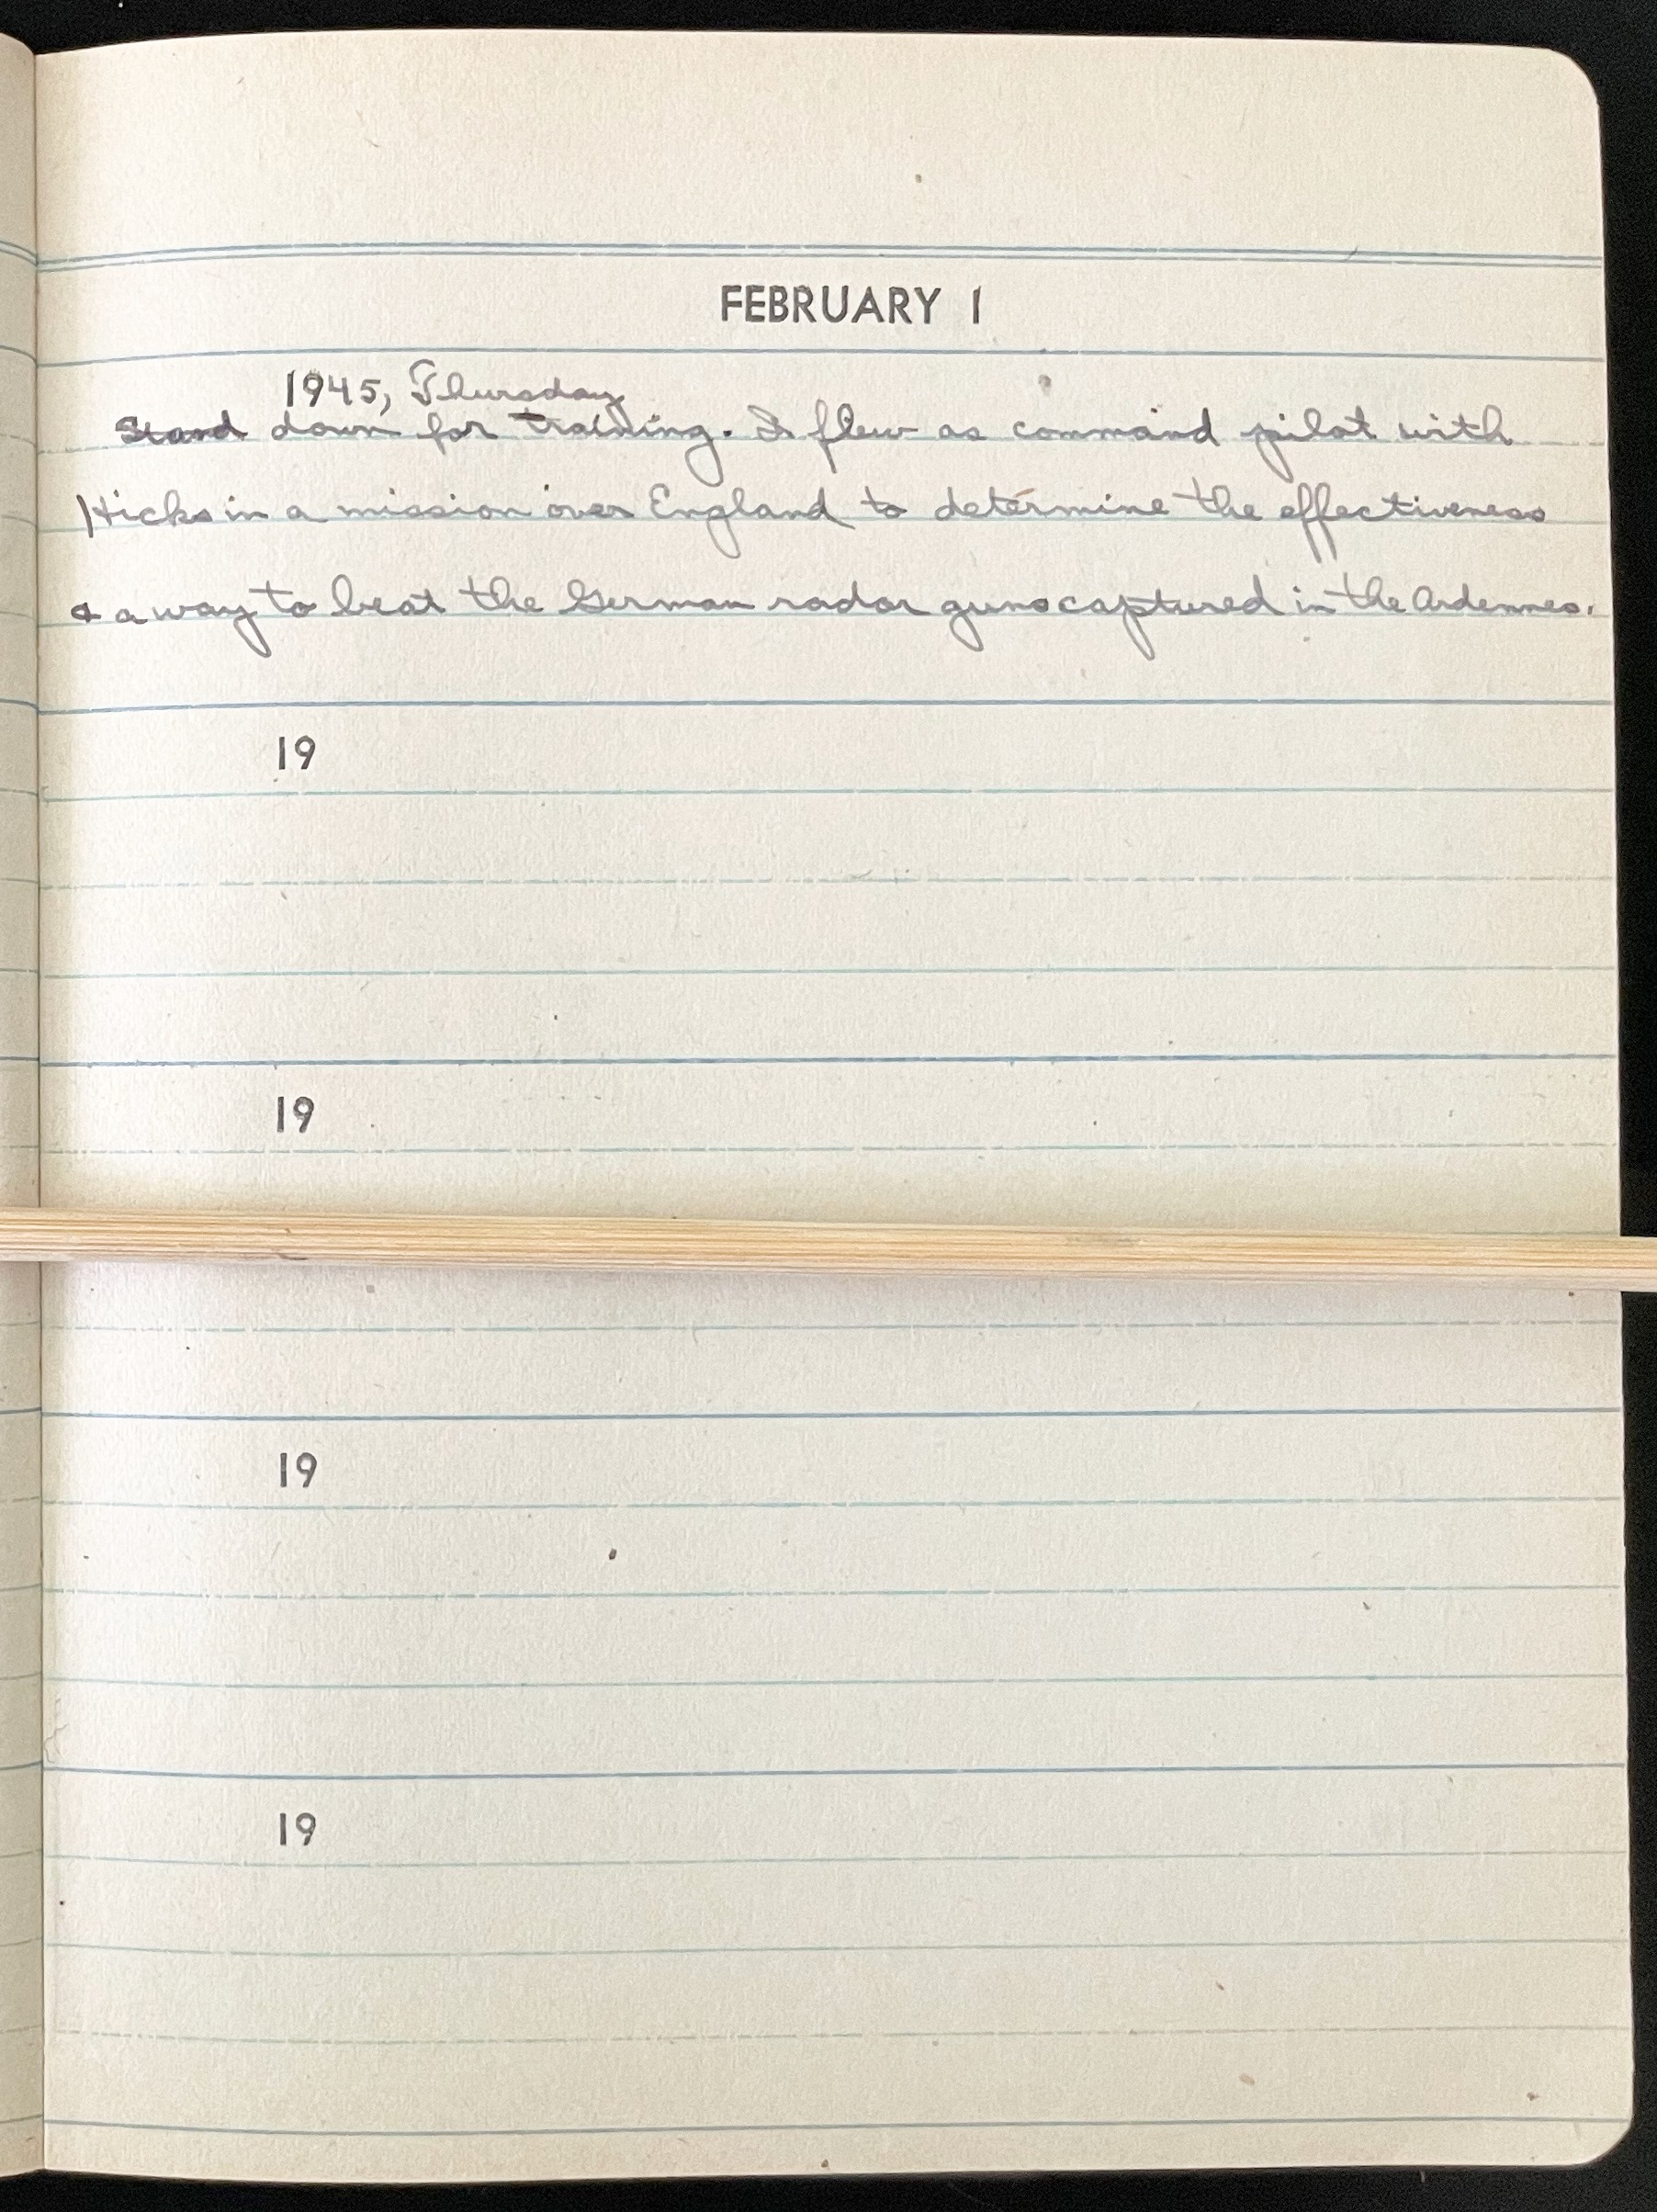 FEBRUARY 1
1945, Thursday
Stand down for training. I flew as command pilot with
Hicks in a mission over England to determine the effectiveness
& a way to beat the German radar guns captured in the Ardennes.
19
19
19
19